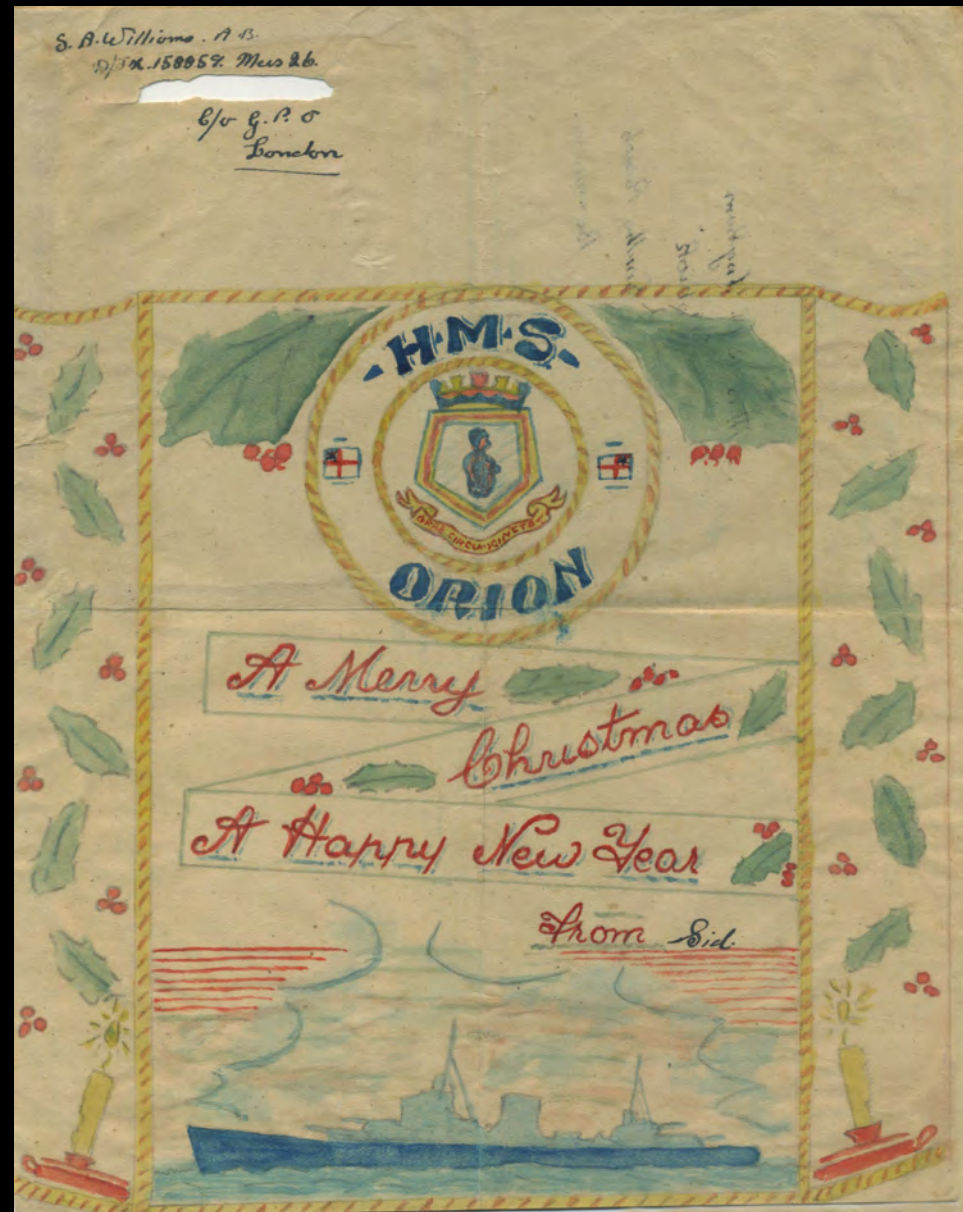 S. A. Williams. A.B.
D/JX.158857. Mess 26.
C/o G.P.O
London
H·M·S
ORION
A Merry
Christmas
A Happy New Year
From Sid.